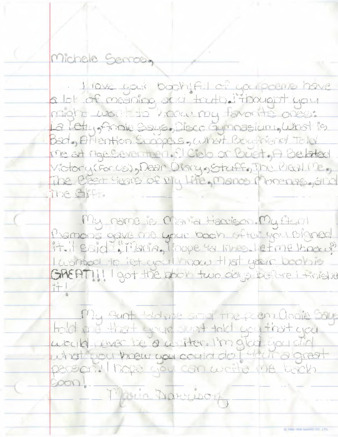 Michele Serros,
I love your book! All of your poems have
a lot of meaning and truth. I thought you
might want to know my favorite ones:
La Letty, Annie Says, Disco Gymnasium, What is
Bad, Attention Shoppers, What Boyfriend Told
Me at Age Seventeen, JC Belo or Bust, A Belated
Victory (For Us), Dear Diary, Stuff, The
The Best Years of My Life, Manos Morenas, and
The Gift.
My name is Maria Harrison. My Aunt
Ramona gave me your book after you signed
it. It said, "Maria, I hope you likes. Let me know!"
I wanted to let you know that your book is
GREAT!!! I got the book two days before I finished
it!
My Aunt told me after the poem Annie Says
told me that your aunt told you that you
would never be a writer. I'm glad you did
what you knew you could do! Your a great
person! I hope you can write me back
soon!
Maria Harrison